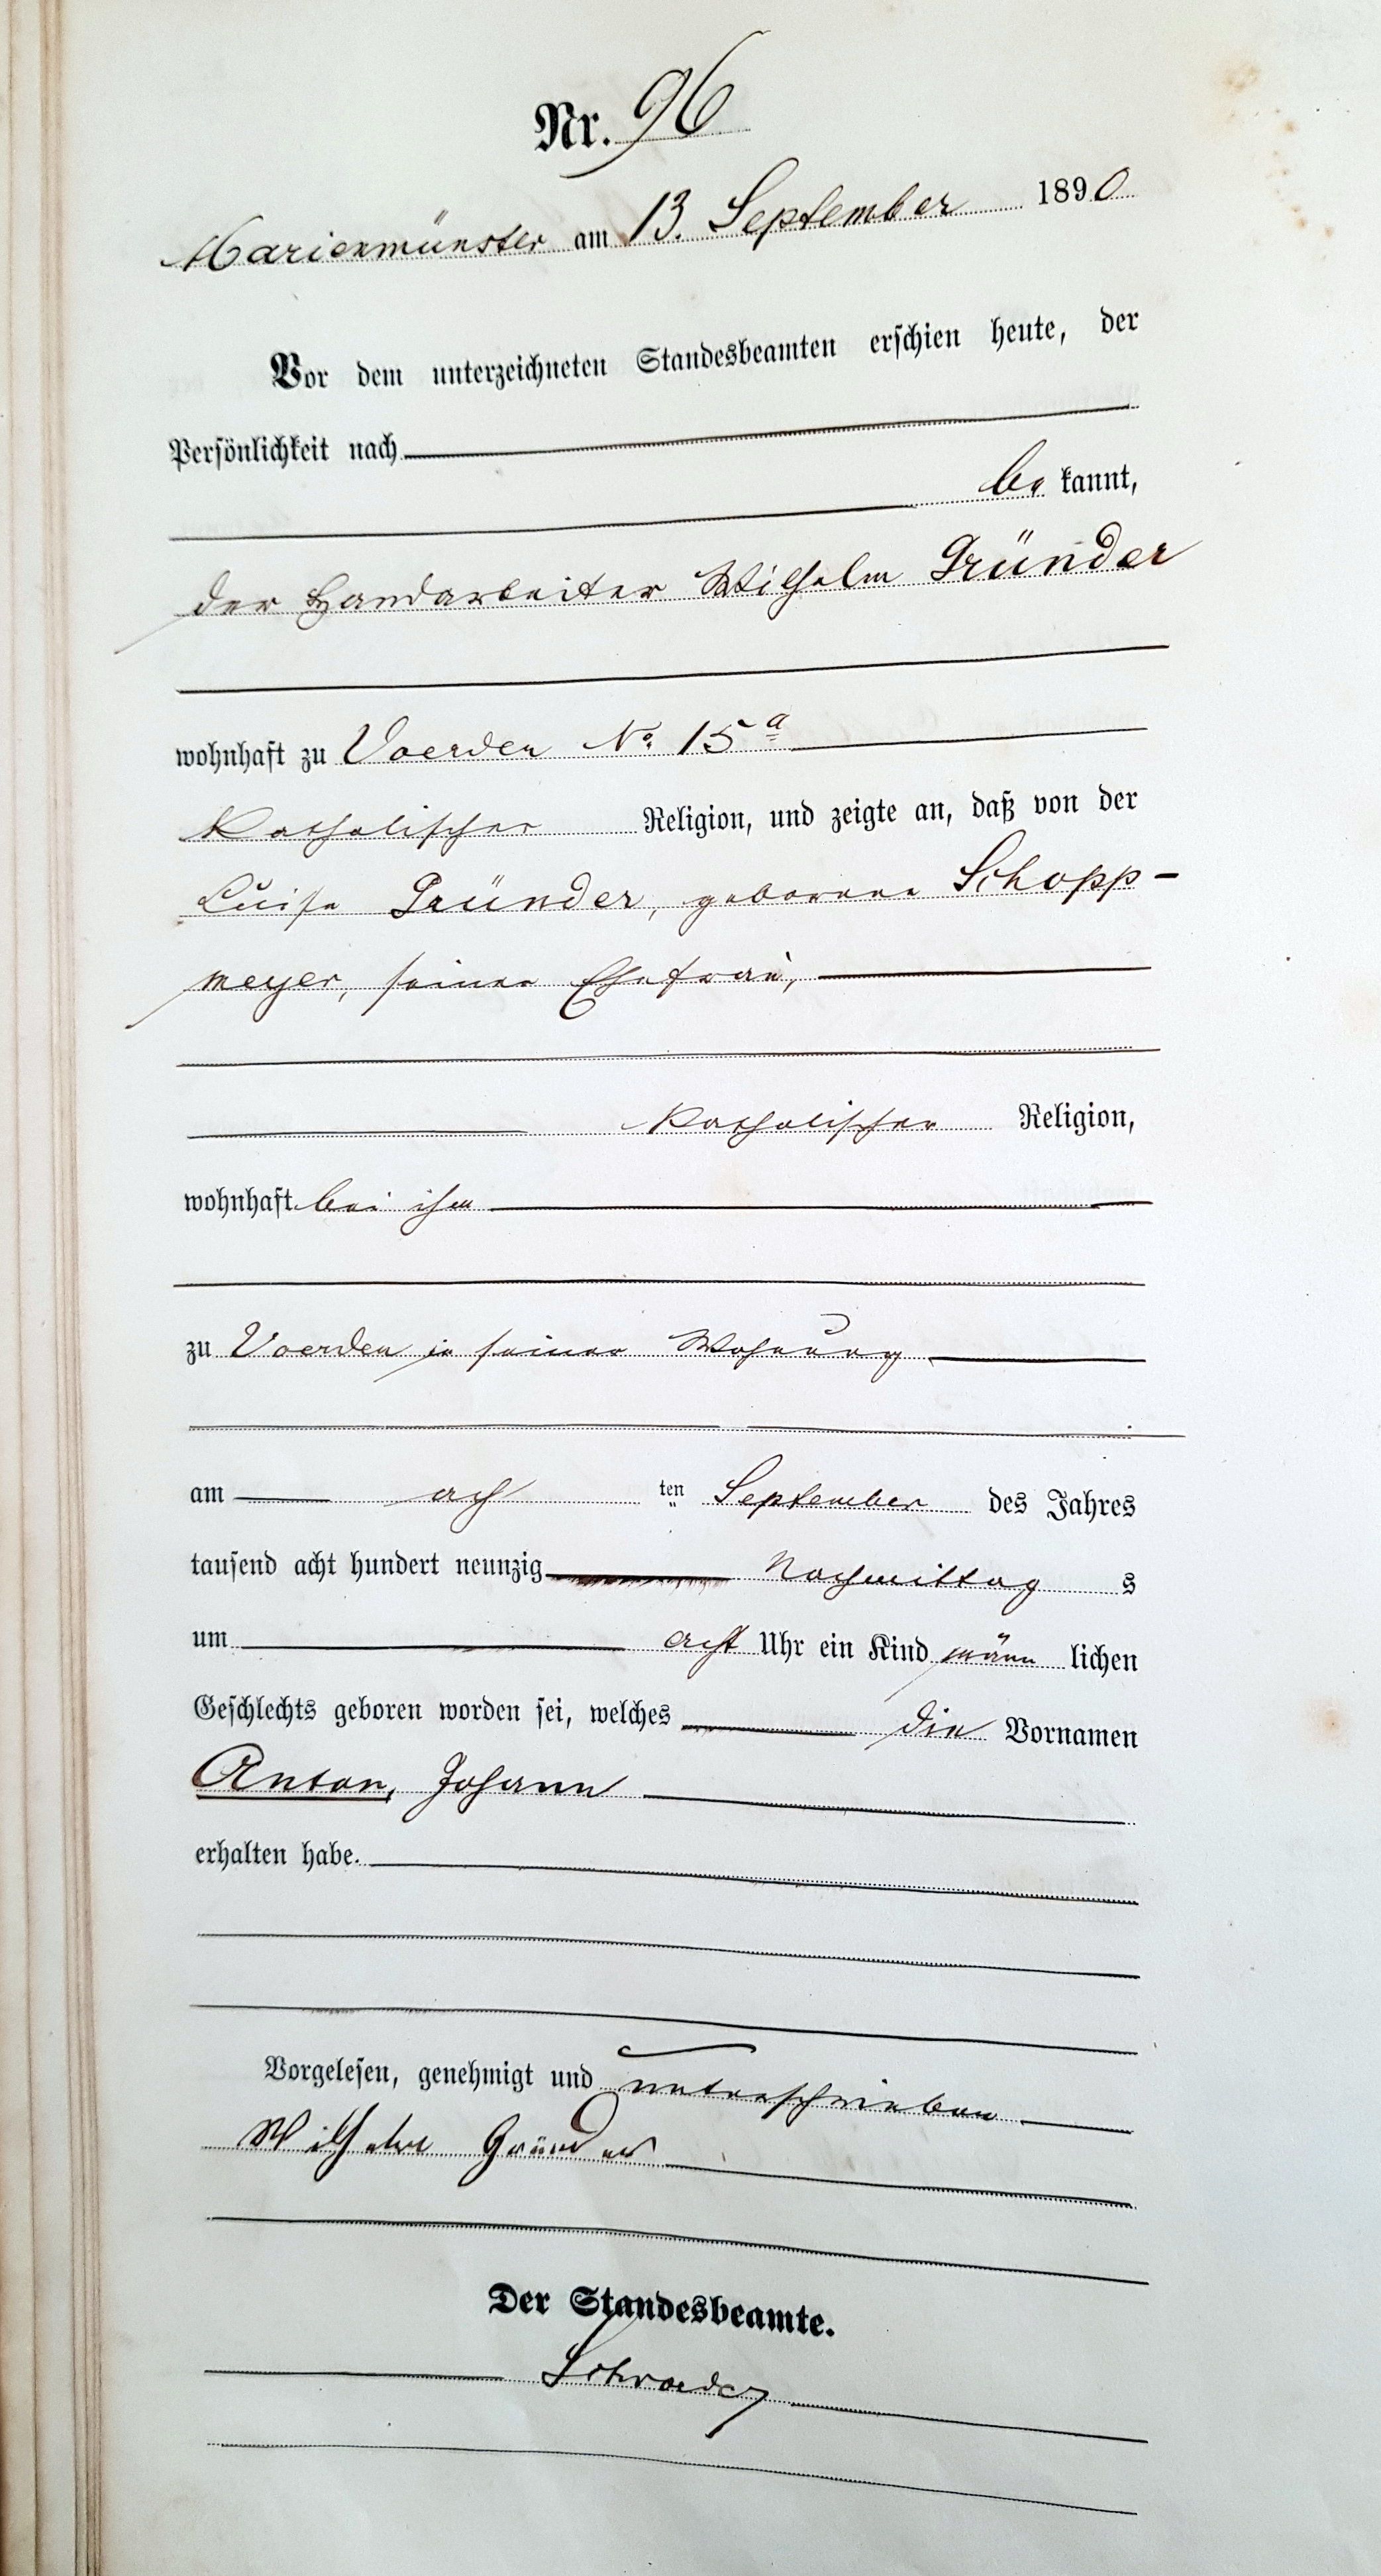 Nr. 96
Marienmünster am 13. September 1890
Vor dem unterzeichneten Standesbeamten erschien heute, der
Persönlichkeit nach
be kannt,
der Handarbeiter Wilhelm Gründer
wohnhaft zu Voerden No 15a
katholischer Religion, und zeigte an, daß von der
Luise Gründer, geborene Schopp-
meyer, seiner Ehefrau,
katholischer Religion,
wohnhaft bei ihm
zu Voerden in seiner Wohnung
am acht ten September des Jahres
tausend acht hundert neunzig Nachmittag s
um acht Uhr ein Kind männ lichen
Geschlechts geboren worden sei, welches die Vornamen
Anton, Johann
erhalten habe.
Vorgelesen, genehmigt und unterschrieben
Wilhelm Gründer
Der Standesbeamte.